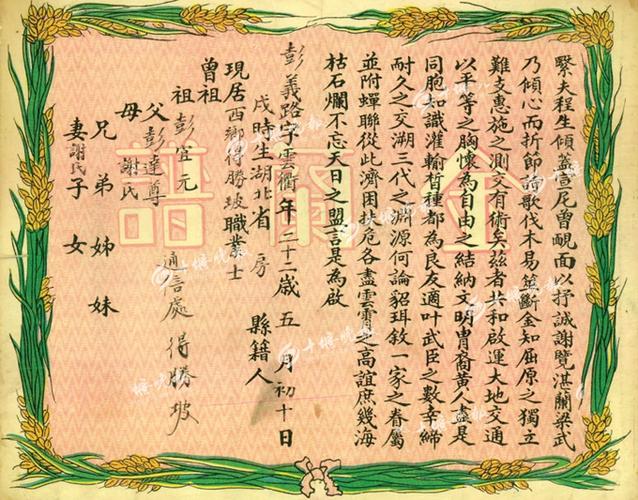 金蘭譜
緊夫程生傾蓋宣尼曾覿面以抒誠謝覽湛蘭梁武
乃傾心而折節論歌伐木易筮斷金知屈原之獨立
難支惠施之測交有術矣茲者共和啟運大地交通
以平等之胸懷為自由之結納文明冑裔黃人盡是
同胞知識灌輸晳種都為良友適叶武臣之數幸締
耐久之交溯三代之淵源何論貂珥敘一家之眷屬
並附蟬聯從此濟困扶危各盡雲霄之高誼庶幾海
枯石爛不忘天日之盟言是為啟
彭義路字雲衢年二十二歲五月初十日
戌時生湖北省 房 縣籍人
現居西鄉得勝坡職業士
曾祖
祖彭宜元 通信處得勝坡
父彭達尊
母謝氏
兄弟姊妹
妻謝氏子女
十堰晚报